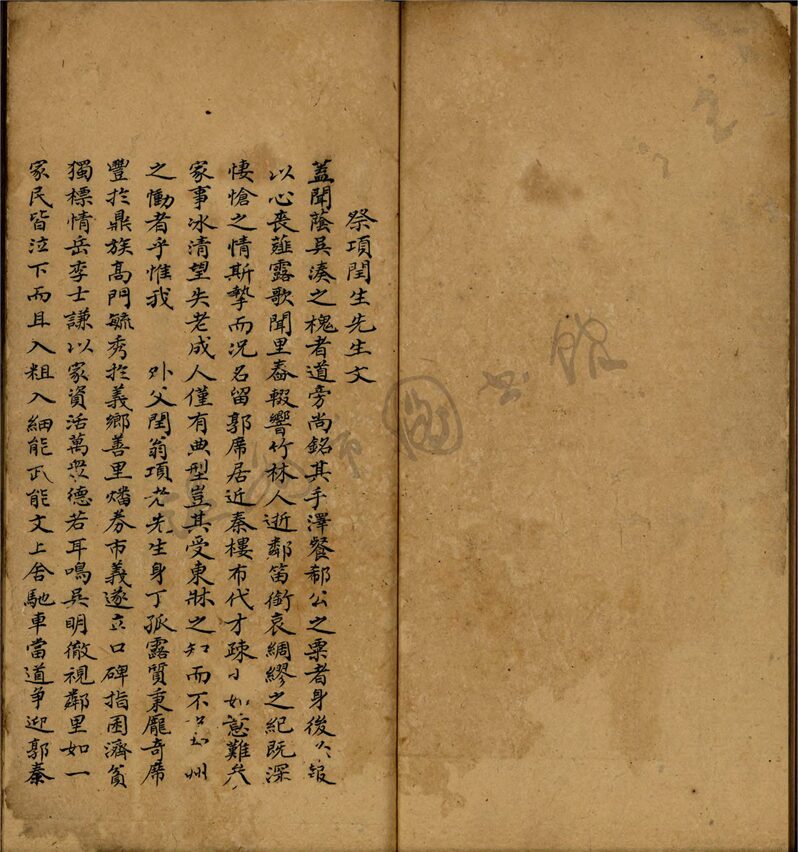 祭項閏生先生文
蓋聞蔭吳湊之槐者道旁尚銘其手澤餐郗公之粟者身後必報
以心喪薤露歌聞里舂輟響竹林人逝鄰笛銜哀綢繆之紀既深
悽愴之情斯摯而況名留郭席居近秦樓布代才疎小如意難參
家事冰清望失老成人僅有典型豈其受東牀之知而不 州
之慟者乎惟我 外父閏翁項老先生身丁孤露質秉龐奇席
豐於鼎族高門毓秀於義鄉善里燔券市義遂立口碑指囷濟貧
獨標情岳李士謙以家資活萬眾德若耳鳴吳明徹視鄰里如一
家民皆泣下而且入粗入細能武能文上舍馳車當道爭迎郭秦
圖書館